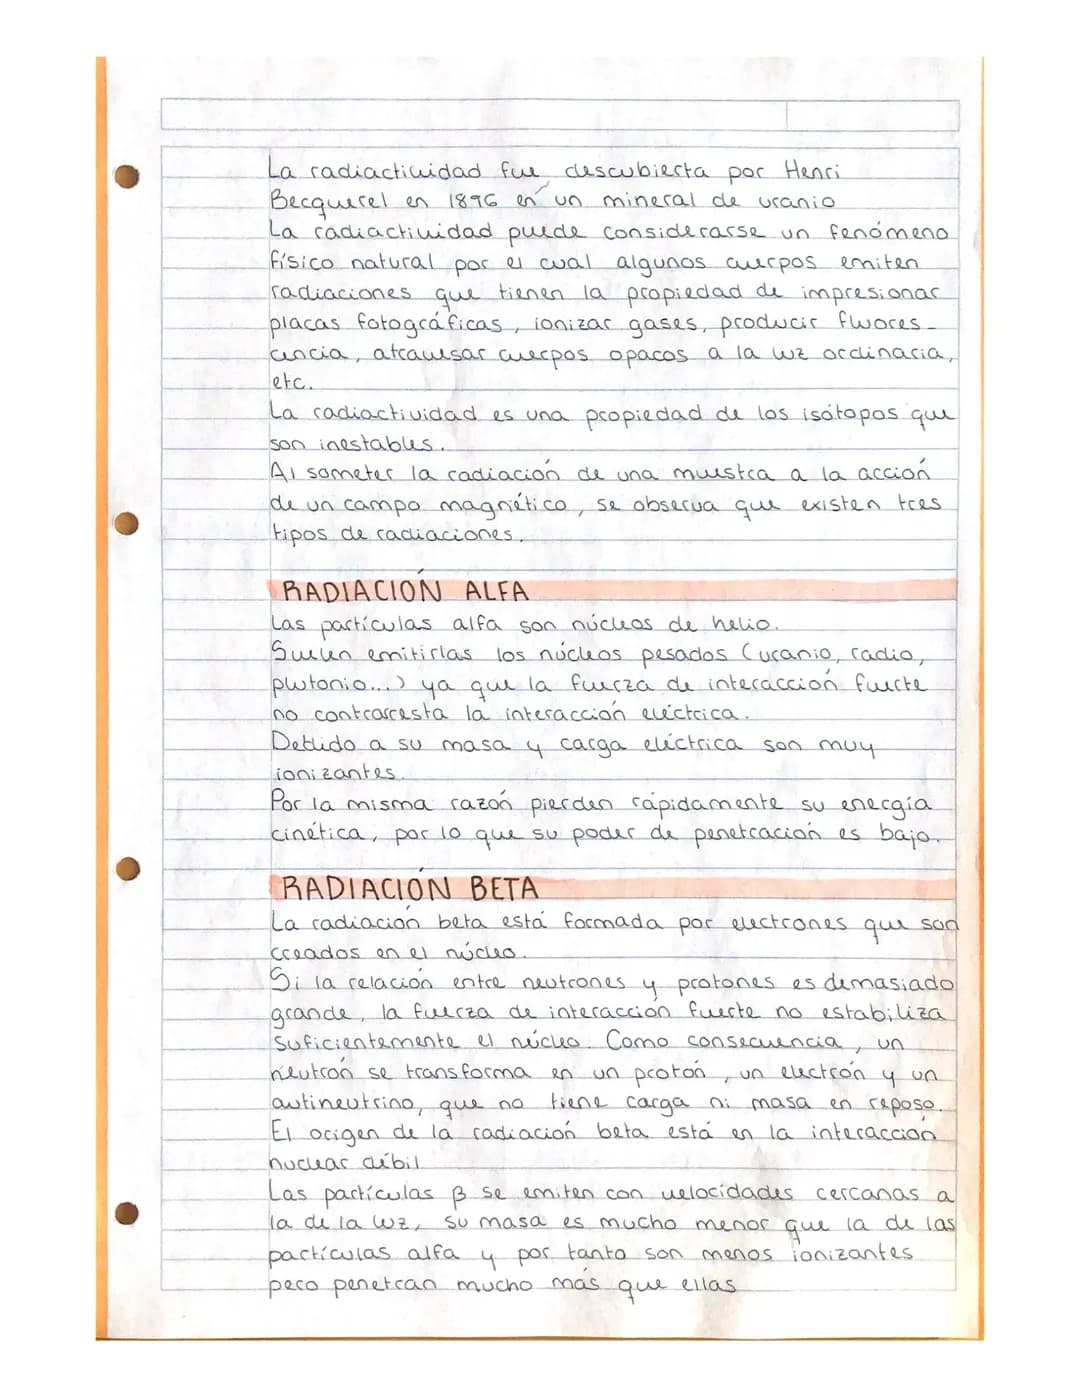 La radiactividad fue descubierta por Henri
Becquerel en 1896 en un mineral de uranio
La radiactividad puede considerarse un fenómeno
físico natural por el cual algunos cuerpos emiten
radiaciones que tienen la propiedad de impresionar
placas fotográficas, ionizar gases, producir fluores-
cencia, atravesar cuerpos opacos a la luz ordinaria,
etc.
La radiactividad es una propiedad de los isótopos que
son inestables.
Al someter la radiación de una muestra a la acción
de un campo magnético, se observa que existen tres
tipos de radiaciones.
RADIACIÓN ALFA
Las partículas alfa son núcleos de helio.
Suelen emitirlas los núcleos pesados (uranio, radio,
plutonio...) ya que la fuerza de interacción fuerte
no contrarresta la interacción eléctrica.
Debido a su masa y carga eléctrica son muy
ionizantes.
Por la misma razón pierden rápidamente su energía
cinética, por lo que su poder de penetración es bajo.
RADIACIÓN BETA
La radiación beta está formada por electrones que son
creados en el núcleo.
Si la relación entre neutrones y protones es demasiado
grande, la fuerza de interacción fuerte no estabiliza
suficientemente el núcleo. Como consecuencia, un
neutrón se transforma en un protón, un electrón y un
antineutrino, que no tiene carga ni masa en reposo.
El origen de la radiación beta está en la interacción
nuclear débil
Las partículas β se emiten con velocidades cercanas a
la de la luz, su masa es mucho menor que la de las
partículas alfa y por tanto son menos ionizantes
pero penetran mucho más que ellas